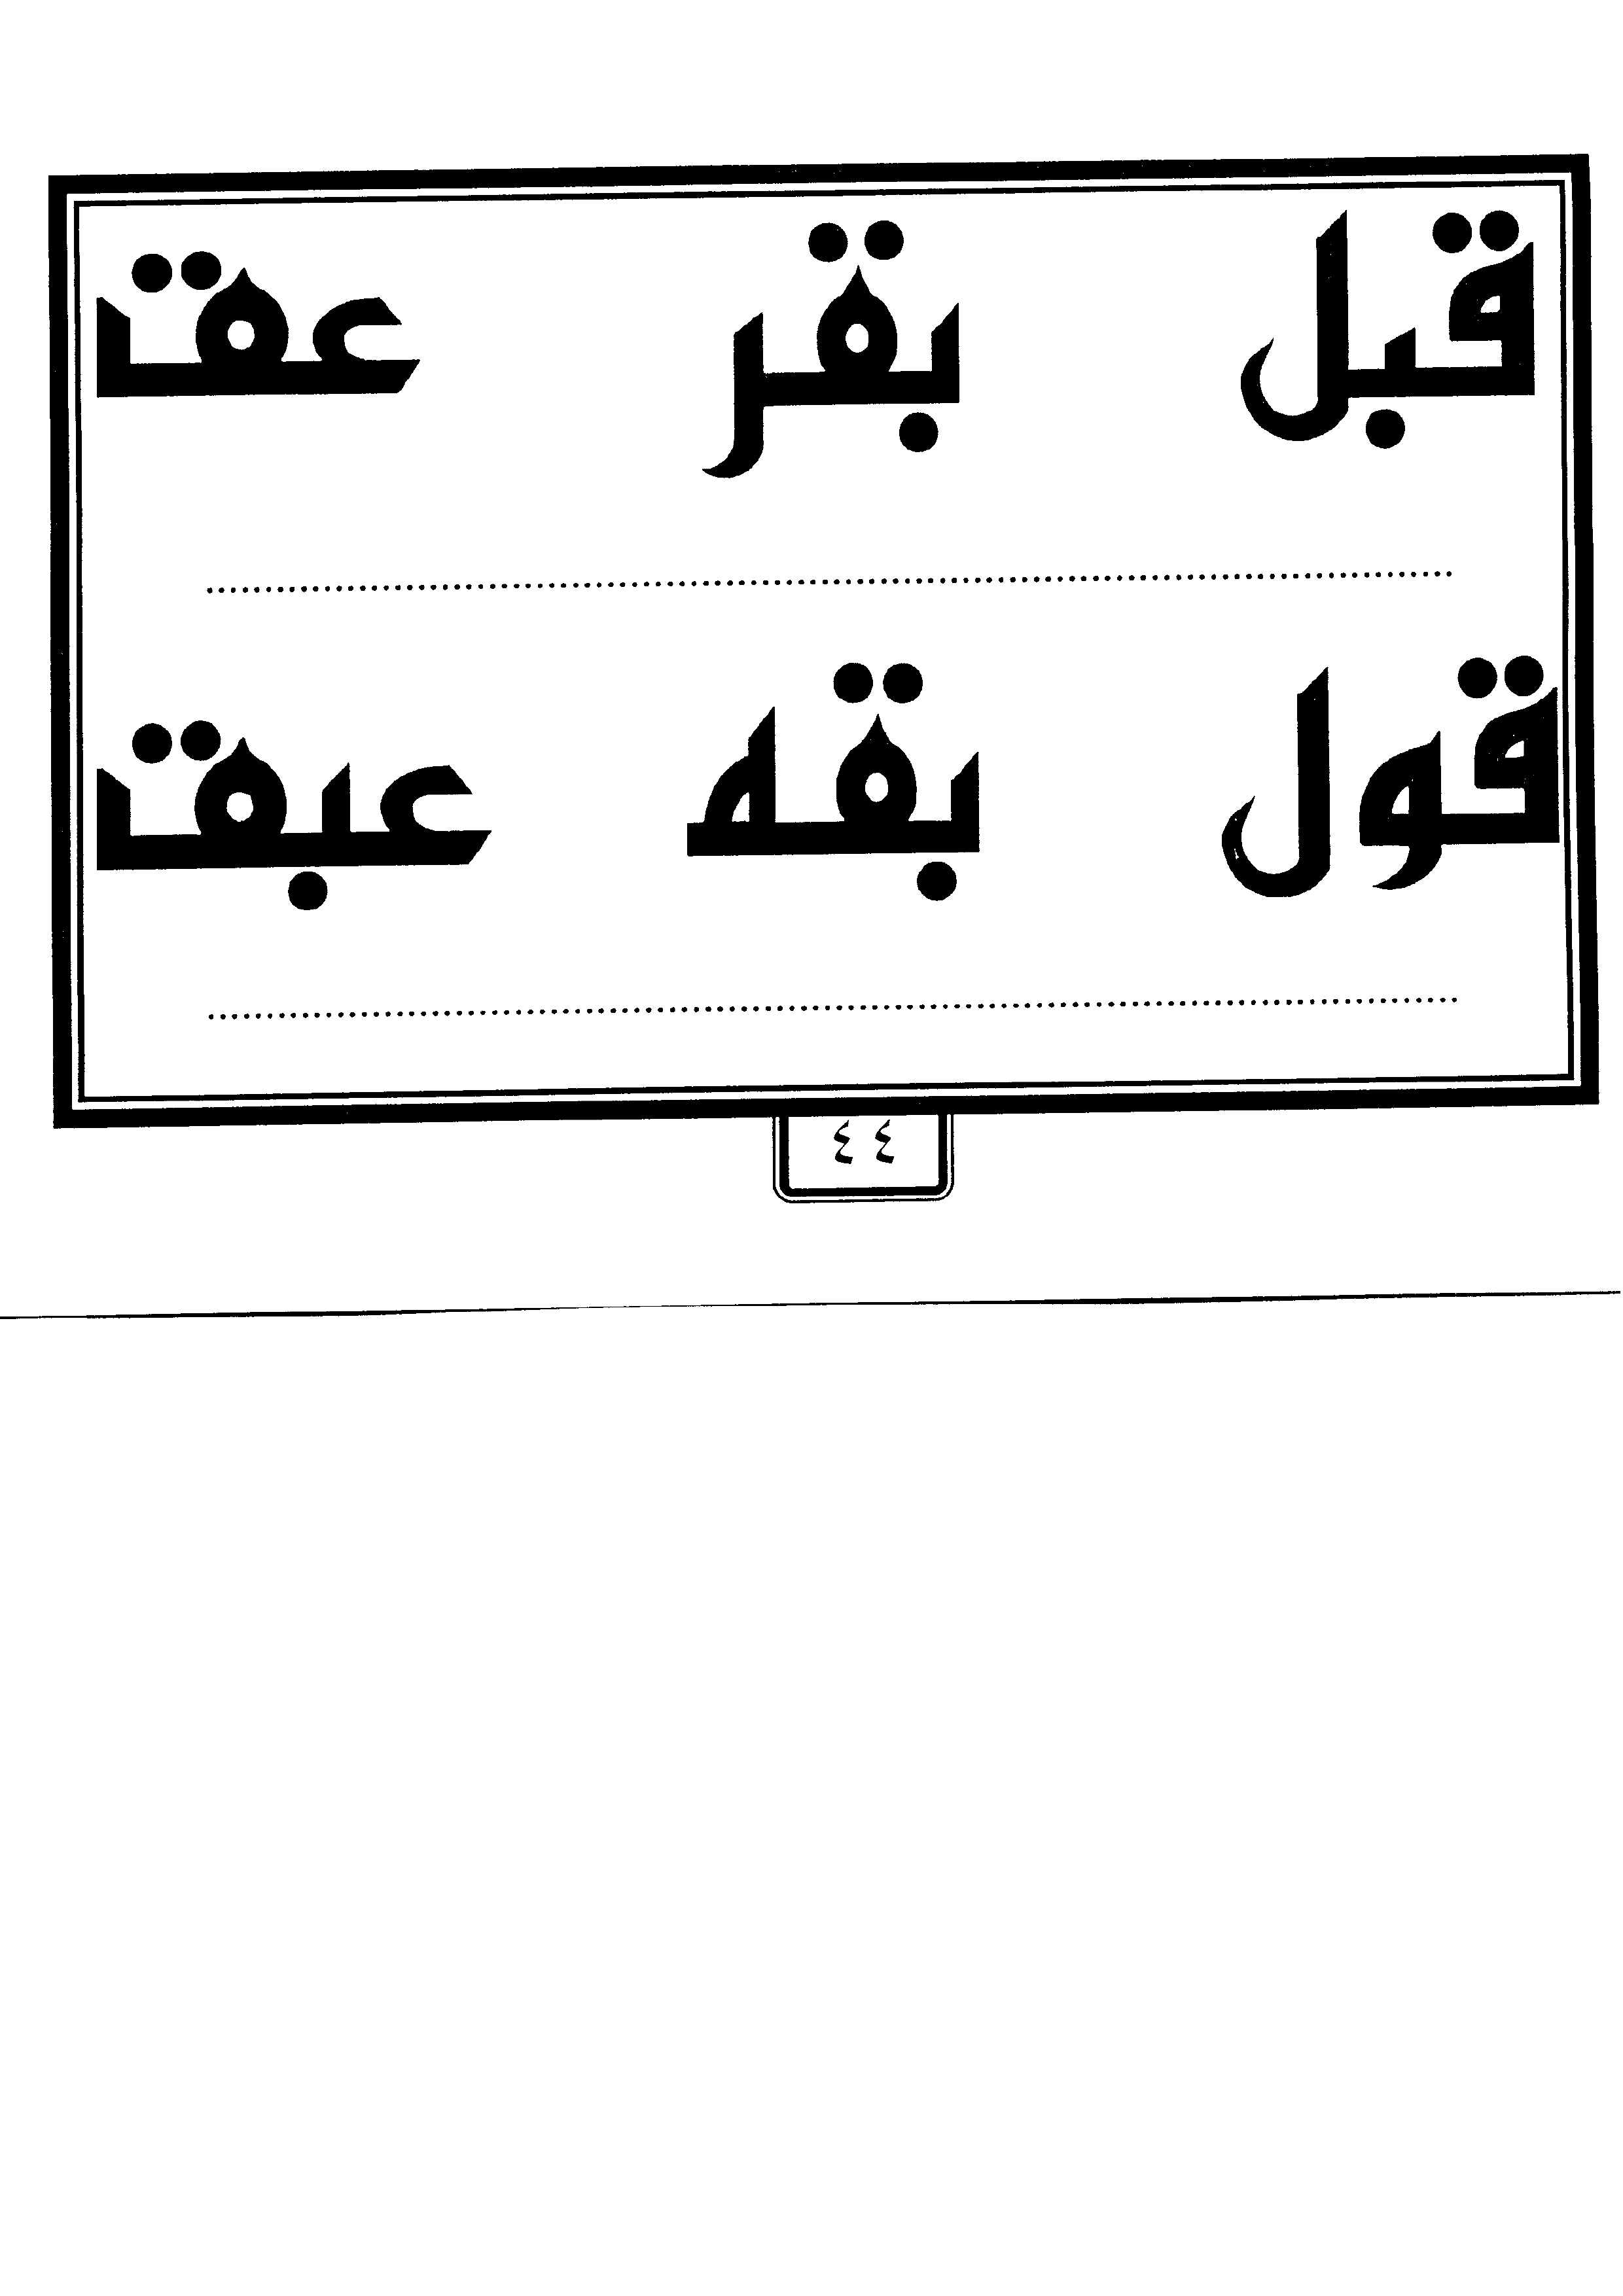 قبل بقر عق
قول بقه عبق
٤٤